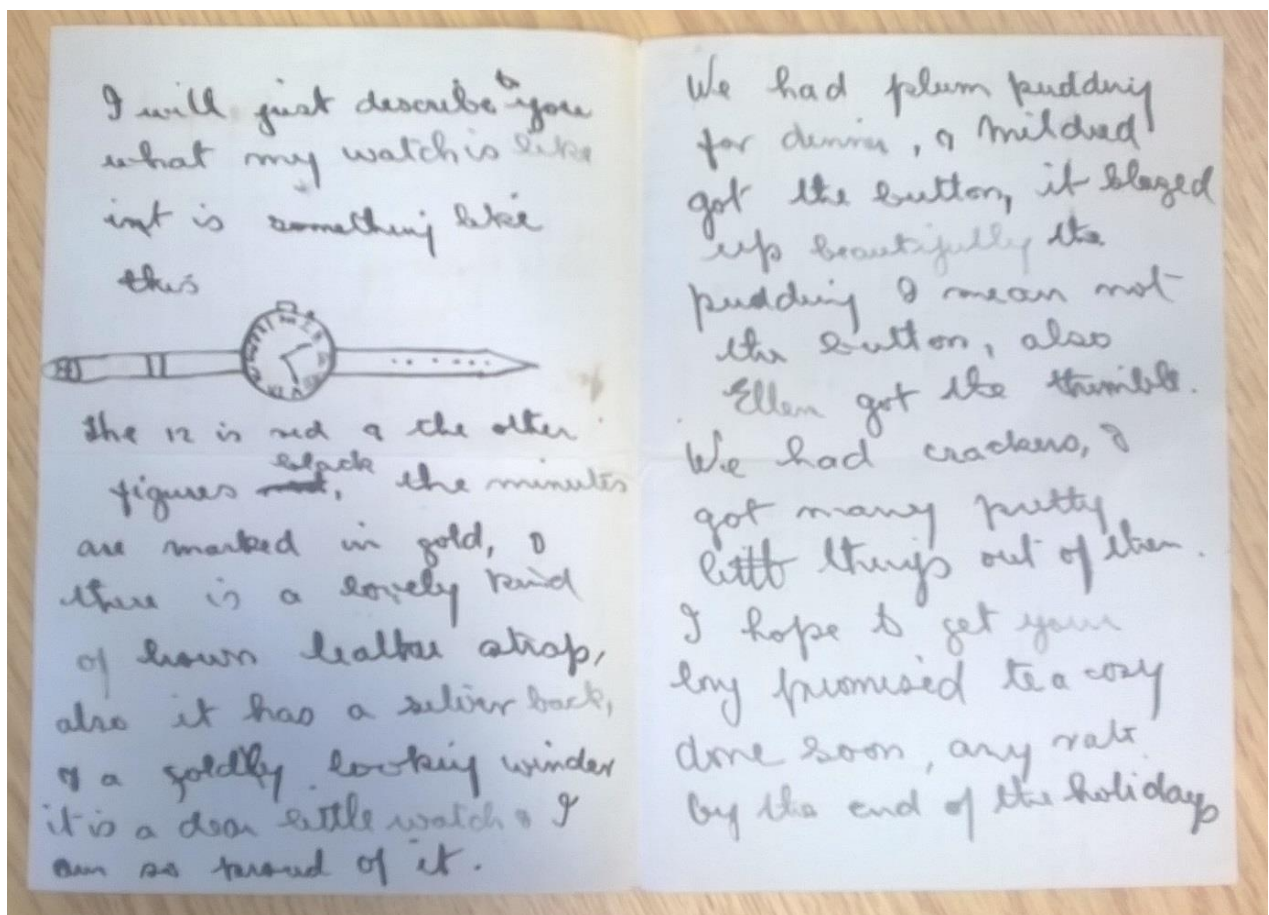 I will just describe to you
what my watch is like
int is something like
this
The 12 is red & the other
figures black, the minutes
are marked in gold, &
there is a lovely kind
of brown leather strap,
also it has a silver back,
& a goldly looking winder
it is a dear little watch & I
am so proud of it.
We had plum pudding
for dinner, & Mildred
got the button, it blazed
up beautifully the
pudding I mean not
the button, also
Ellen got the thimble.
We had crackers, &
got many pretty
little things out of them.
I hope to get your
long promised tea cosy
done soon, any rate
by the end of the holidays